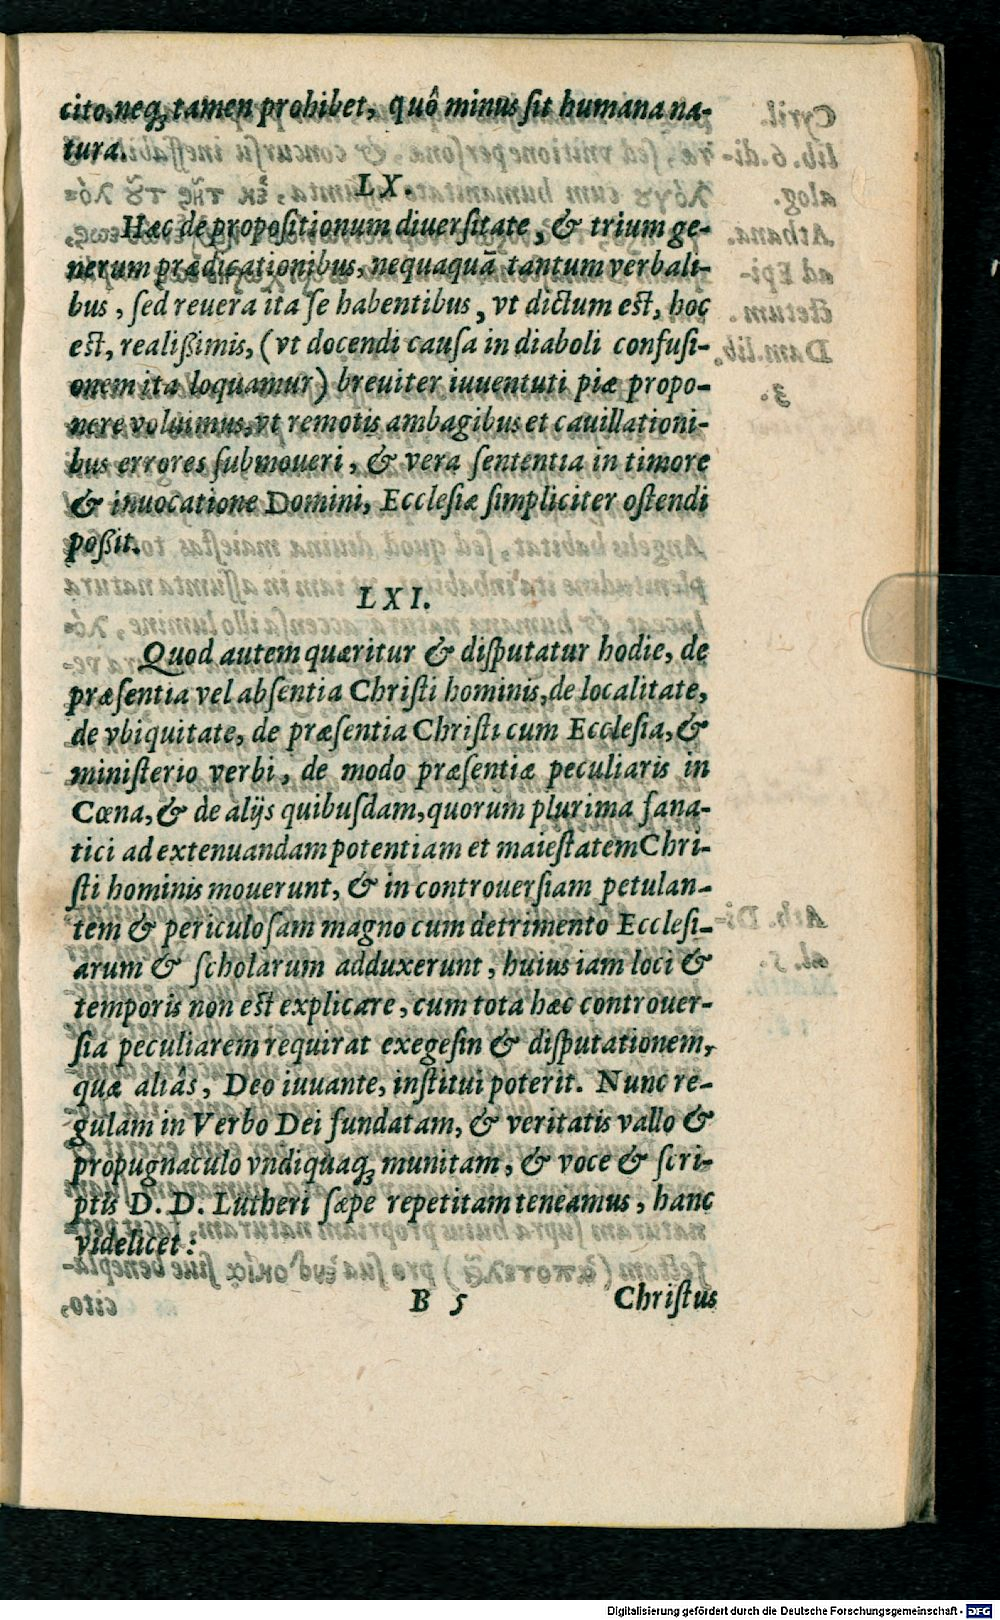 cito, neq́; tamen prohibet, quô minus sit humana na-
tura.
LX.
Hæc de propositionum diuersitate, & trium ge-
nerum prædicationibus, nequaquā tantum verbali-
bus, sed reuera ita se habentibus, vt dictum est, hoc
est, realißimis, (vt docendi causa in diaboli confusi-
onem ita loquamur) breuiter iuuentuti piæ propo-
nere voluimus, vt remotis ambagibus et cauillationi-
bus errores submoueri, & vera sententia in timore
& inuocatione Domini, Ecclesiæ simpliciter ostendi
poßit.
LXI.
Quod autem quæritur & disputatur hodie, de
præsentia vel absentia Christi hominis, de localitate,
de vbiquitate, de præsentia Christi cum Ecclesia, &
ministerio verbi, de modo præsentiæ peculiaris in
Cœna, & de alijs quibusdam, quorum plurima fana-
tici ad extenuandam potentiam et maiestatem Chri-
sti hominis mouerunt, & in controuersiam petulan-
tem & periculosam magno cum detrimento Ecclesi-
arum & scholarum adduxerunt, huius iam loci &
temporis non est explicare, cum tota hæc controuer-
sia peculiarem requirat exegesin & disputationem,
quæ aliâs, Deo iuuante, institui poterit. Nunc re-
gulam in Verbo Dei fundatam, & veritatis vallo &
propugnaculo vndiquaq́; munitam, & voce & scri-
ptis D. D. Lutheri sæpe repetitam teneamus, hanc
videlicet:
B 5 Christus
Digitalisierung gefördert durch die Deutsche Forschungsgemeinschaft - DFG